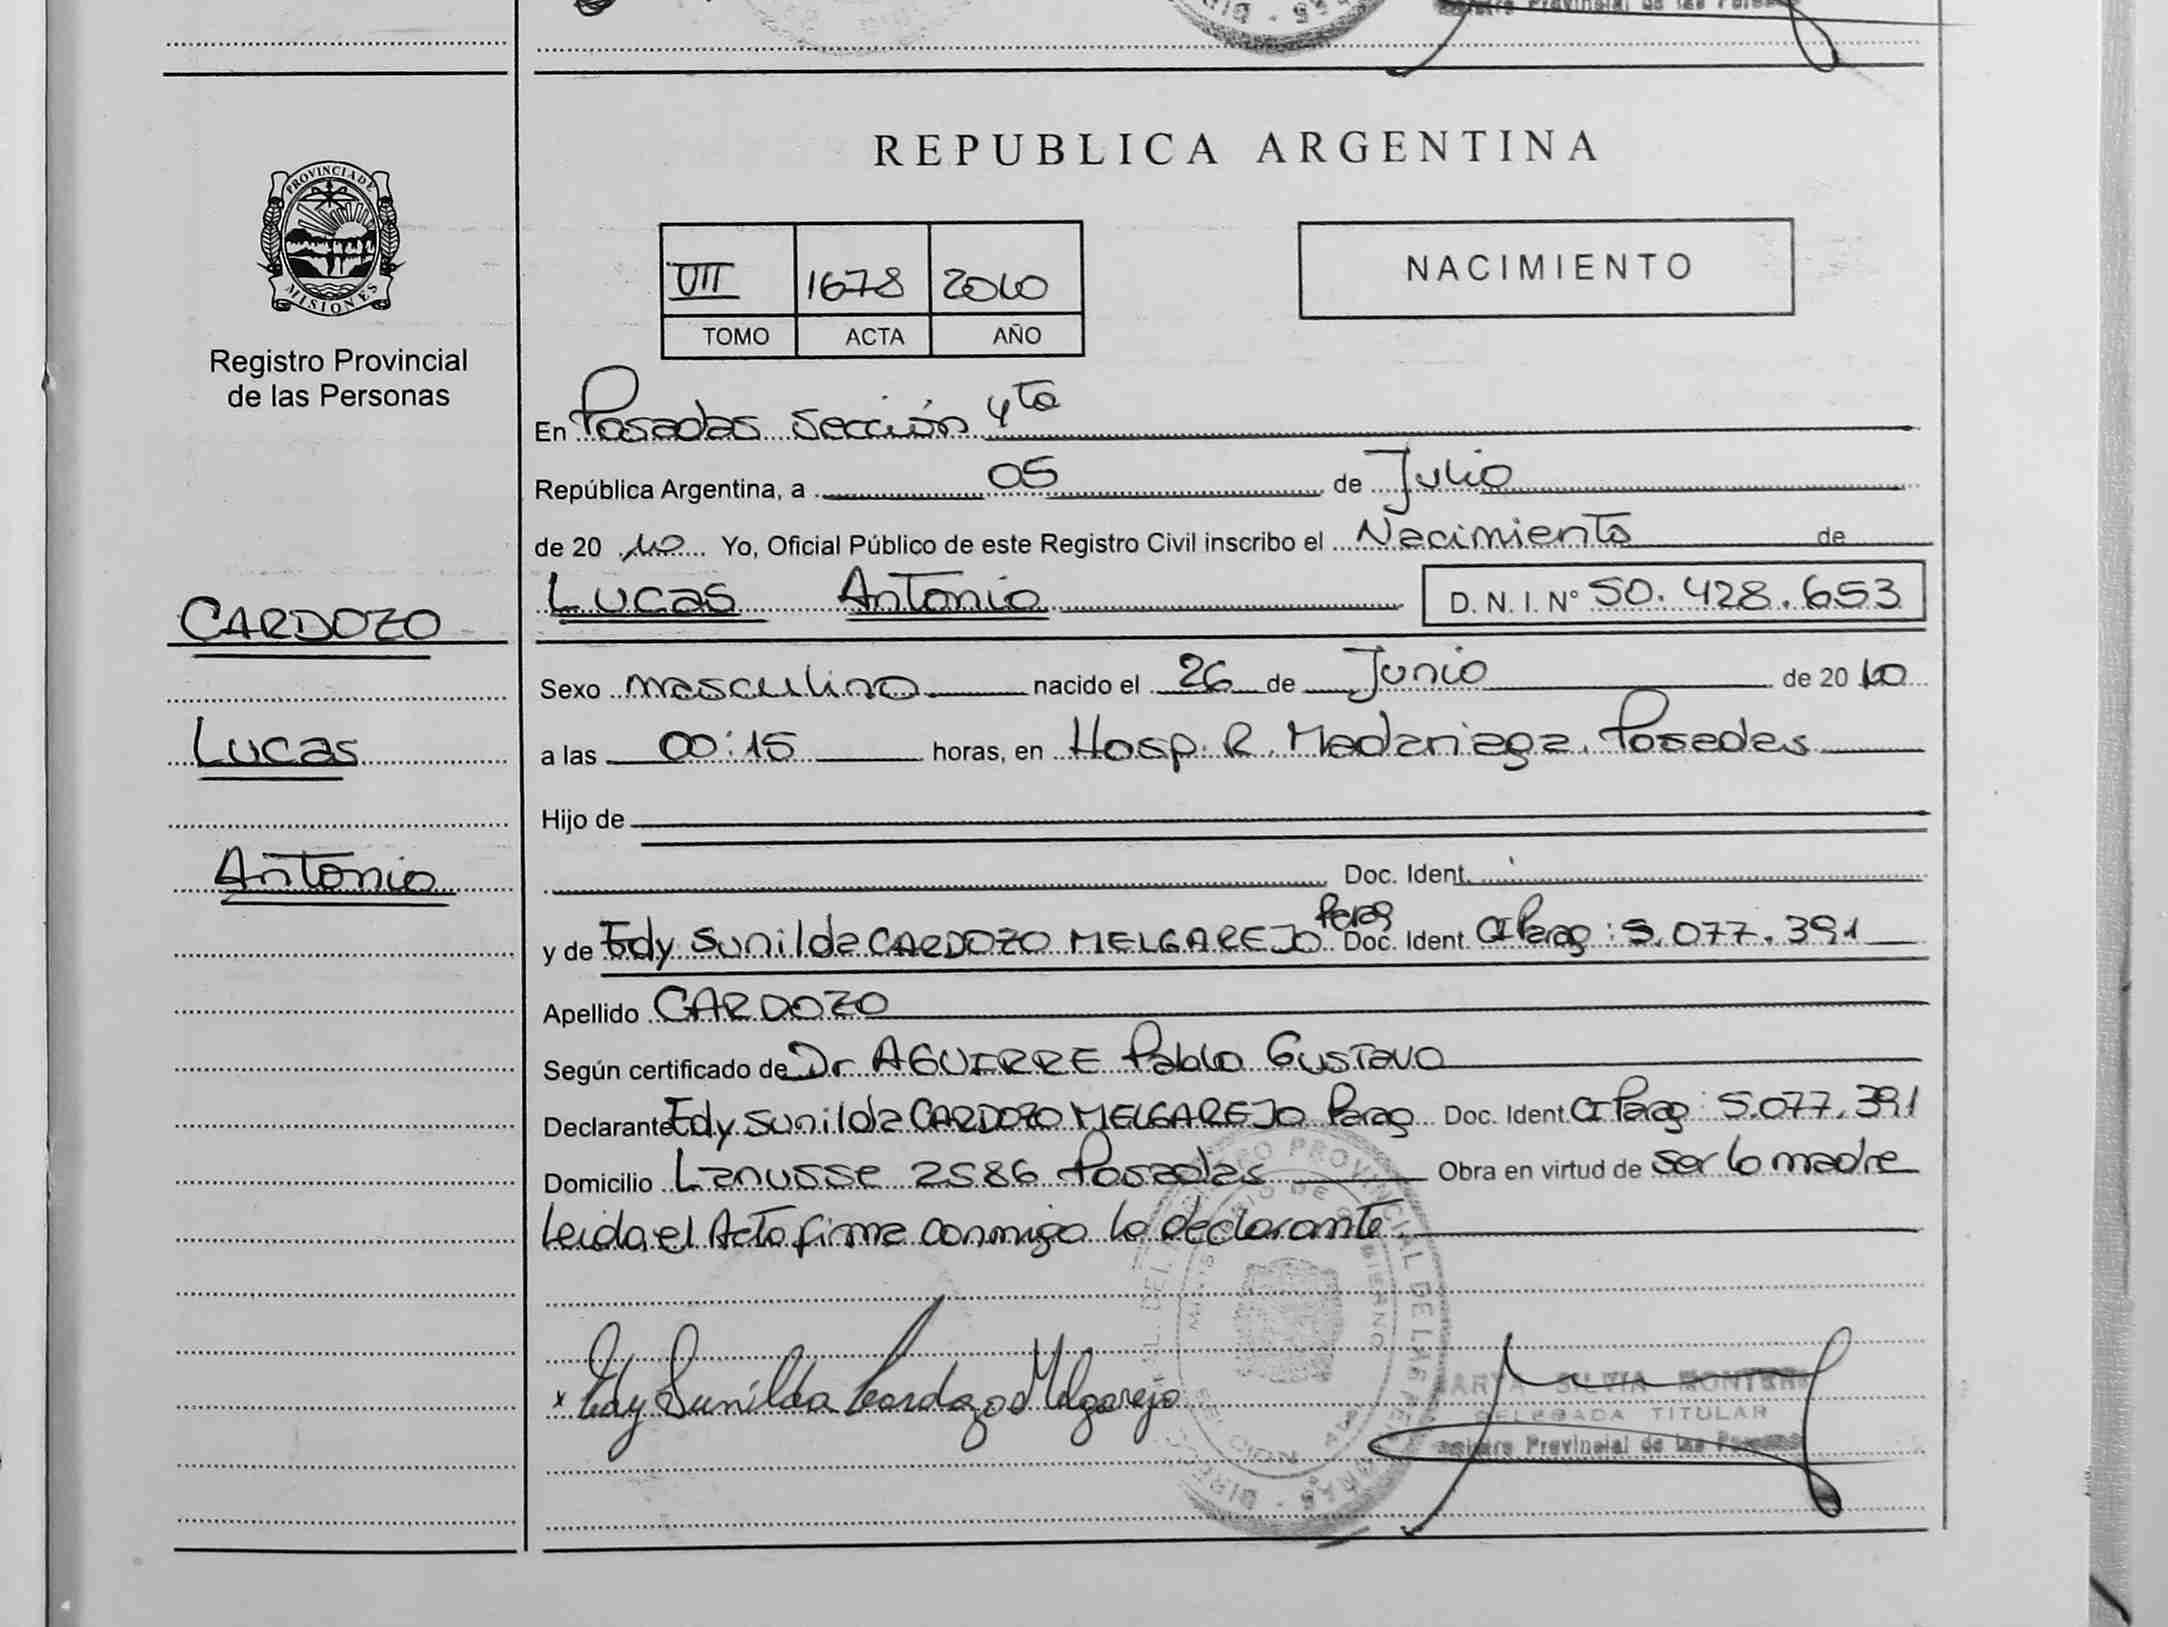 REPUBLICA ARGENTINA
PROVINCIA DE
MISIONES
Registro Provincial
de las Personas
VII 1678 2010
TOMO ACTA AÑO
NACIMIENTO
En Posadas Sección 4ta
República Argentina, a 05 de Julio
de 2010 Yo, Oficial Público de este Registro Civil inscribo el Nacimiento de
Lucas Antonio D. N. I. Nº 50.428.653
CARDOZO
Lucas
Antonio
Sexo masculino nacido el 26 de Junio de 2010
a las 00:15 horas, en Hosp. R. Madariaga. Posadas
Hijo de
Doc. Ident.
y de Edy Sunilda CARDOZO MELGAREJO Parag Doc. Ident. CI Parag: 5.077.391
Apellido CARDOZO
Según certificado de Dr AGUIRRE Pablo Gustavo
Declarante Edy Sunilda CARDOZO MELGAREJO Parag Doc. Ident. CI Parag: 5.077.391
Domicilio Lanusse 2586 Posadas Obra en virtud de ser la madre
Leida el Acta firma conmigo la declarante
x Edy Sunilda Cardozo Melgarejo
SILVIA
DELEGADA TITULAR
Provincial de las